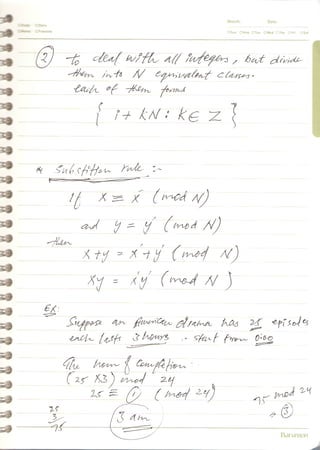 ② to deal with all integers, but divide
them into N equivalent classes.
each of them forms
{ i + kN : k ∈ Z }
* Substitution rule :-
If x ≡ x' (mod N)
and y ≡ y' (mod N)
then
x+y ≡ x'+y' (mod N)
xy ≡ x'y' (mod N)
Ex:
Suppose an American drama has 25 episodes
each lasts 3 hours . start from 0:00
The hour of completion
(25 x3) mod 24
25 ≡ ① (mod 24)
75 mod 24
③
25
3
75
3 am